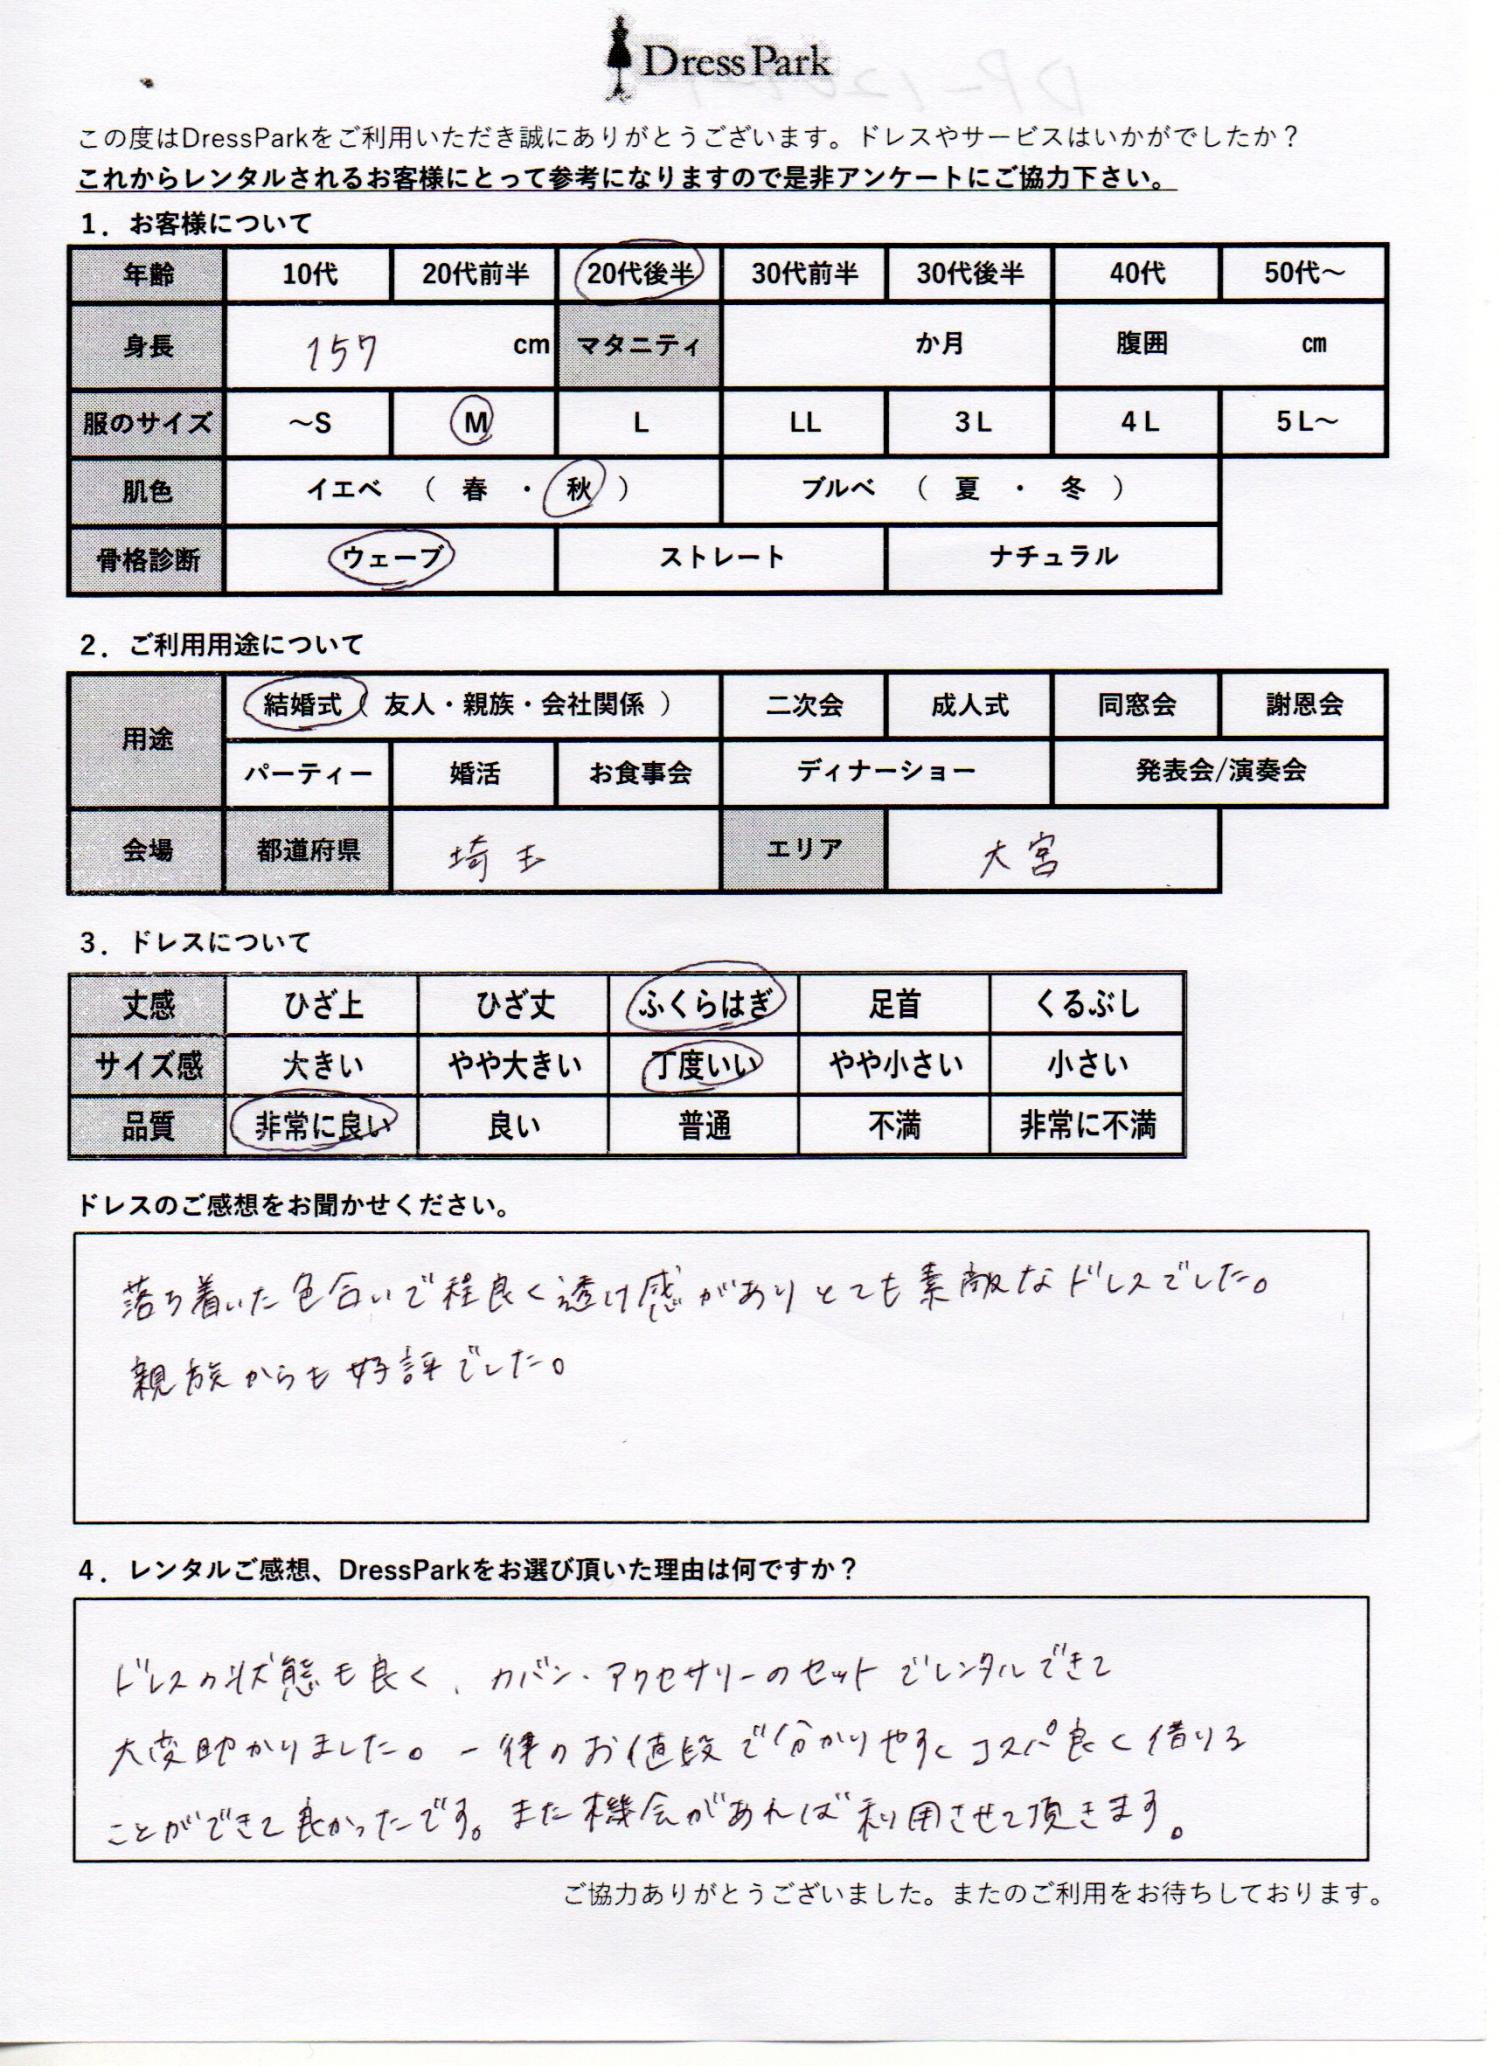 DressPark
この度はDressParkをご利用いただき誠にありがとうございます。ドレスやサービスはいかがでしたか？
これからレンタルされるお客様にとって参考になりますので是非アンケートにご協力下さい。
1．お客様について
年齢 10代 20代前半 20代後半 30代前半 30代後半 40代 50代～
身長 157 cm マタニティ か月 腹囲 cm
服のサイズ ～S M L LL 3L 4L 5L～
肌色 イエベ （ 春 ・ 秋 ） ブルベ （ 夏 ・ 冬 ）
骨格診断 ウェーブ ストレート ナチュラル
2．ご利用用途について
用途 結婚式（ 友人・親族・会社関係 ） 二次会 成人式 同窓会 謝恩会
パーティー 婚活 お食事会 ディナーショー 発表会/演奏会
会場 都道府県 埼玉 エリア 大宮
3．ドレスについて
丈感 ひざ上 ひざ丈 ふくらはぎ 足首 くるぶし
サイズ感 大きい やや大きい 丁度いい やや小さい 小さい
品質 非常に良い 良い 普通 不満 非常に不満
ドレスのご感想をお聞かせください。
落ち着いた色合いで程良く透け感がありとても素敵なドレスでした。
親族からも好評でした。
4．レンタルご感想、DressParkをお選び頂いた理由は何ですか？
ドレスの状態も良く、カバン・アクセサリーのセットでレンタルできて
大変助かりました。一律のお値段で分かりやすくコスパ良く借りる
ことができて良かったです。また機会があれば利用させて頂きます。
ご協力ありがとうございました。またのご利用をお待ちしております。